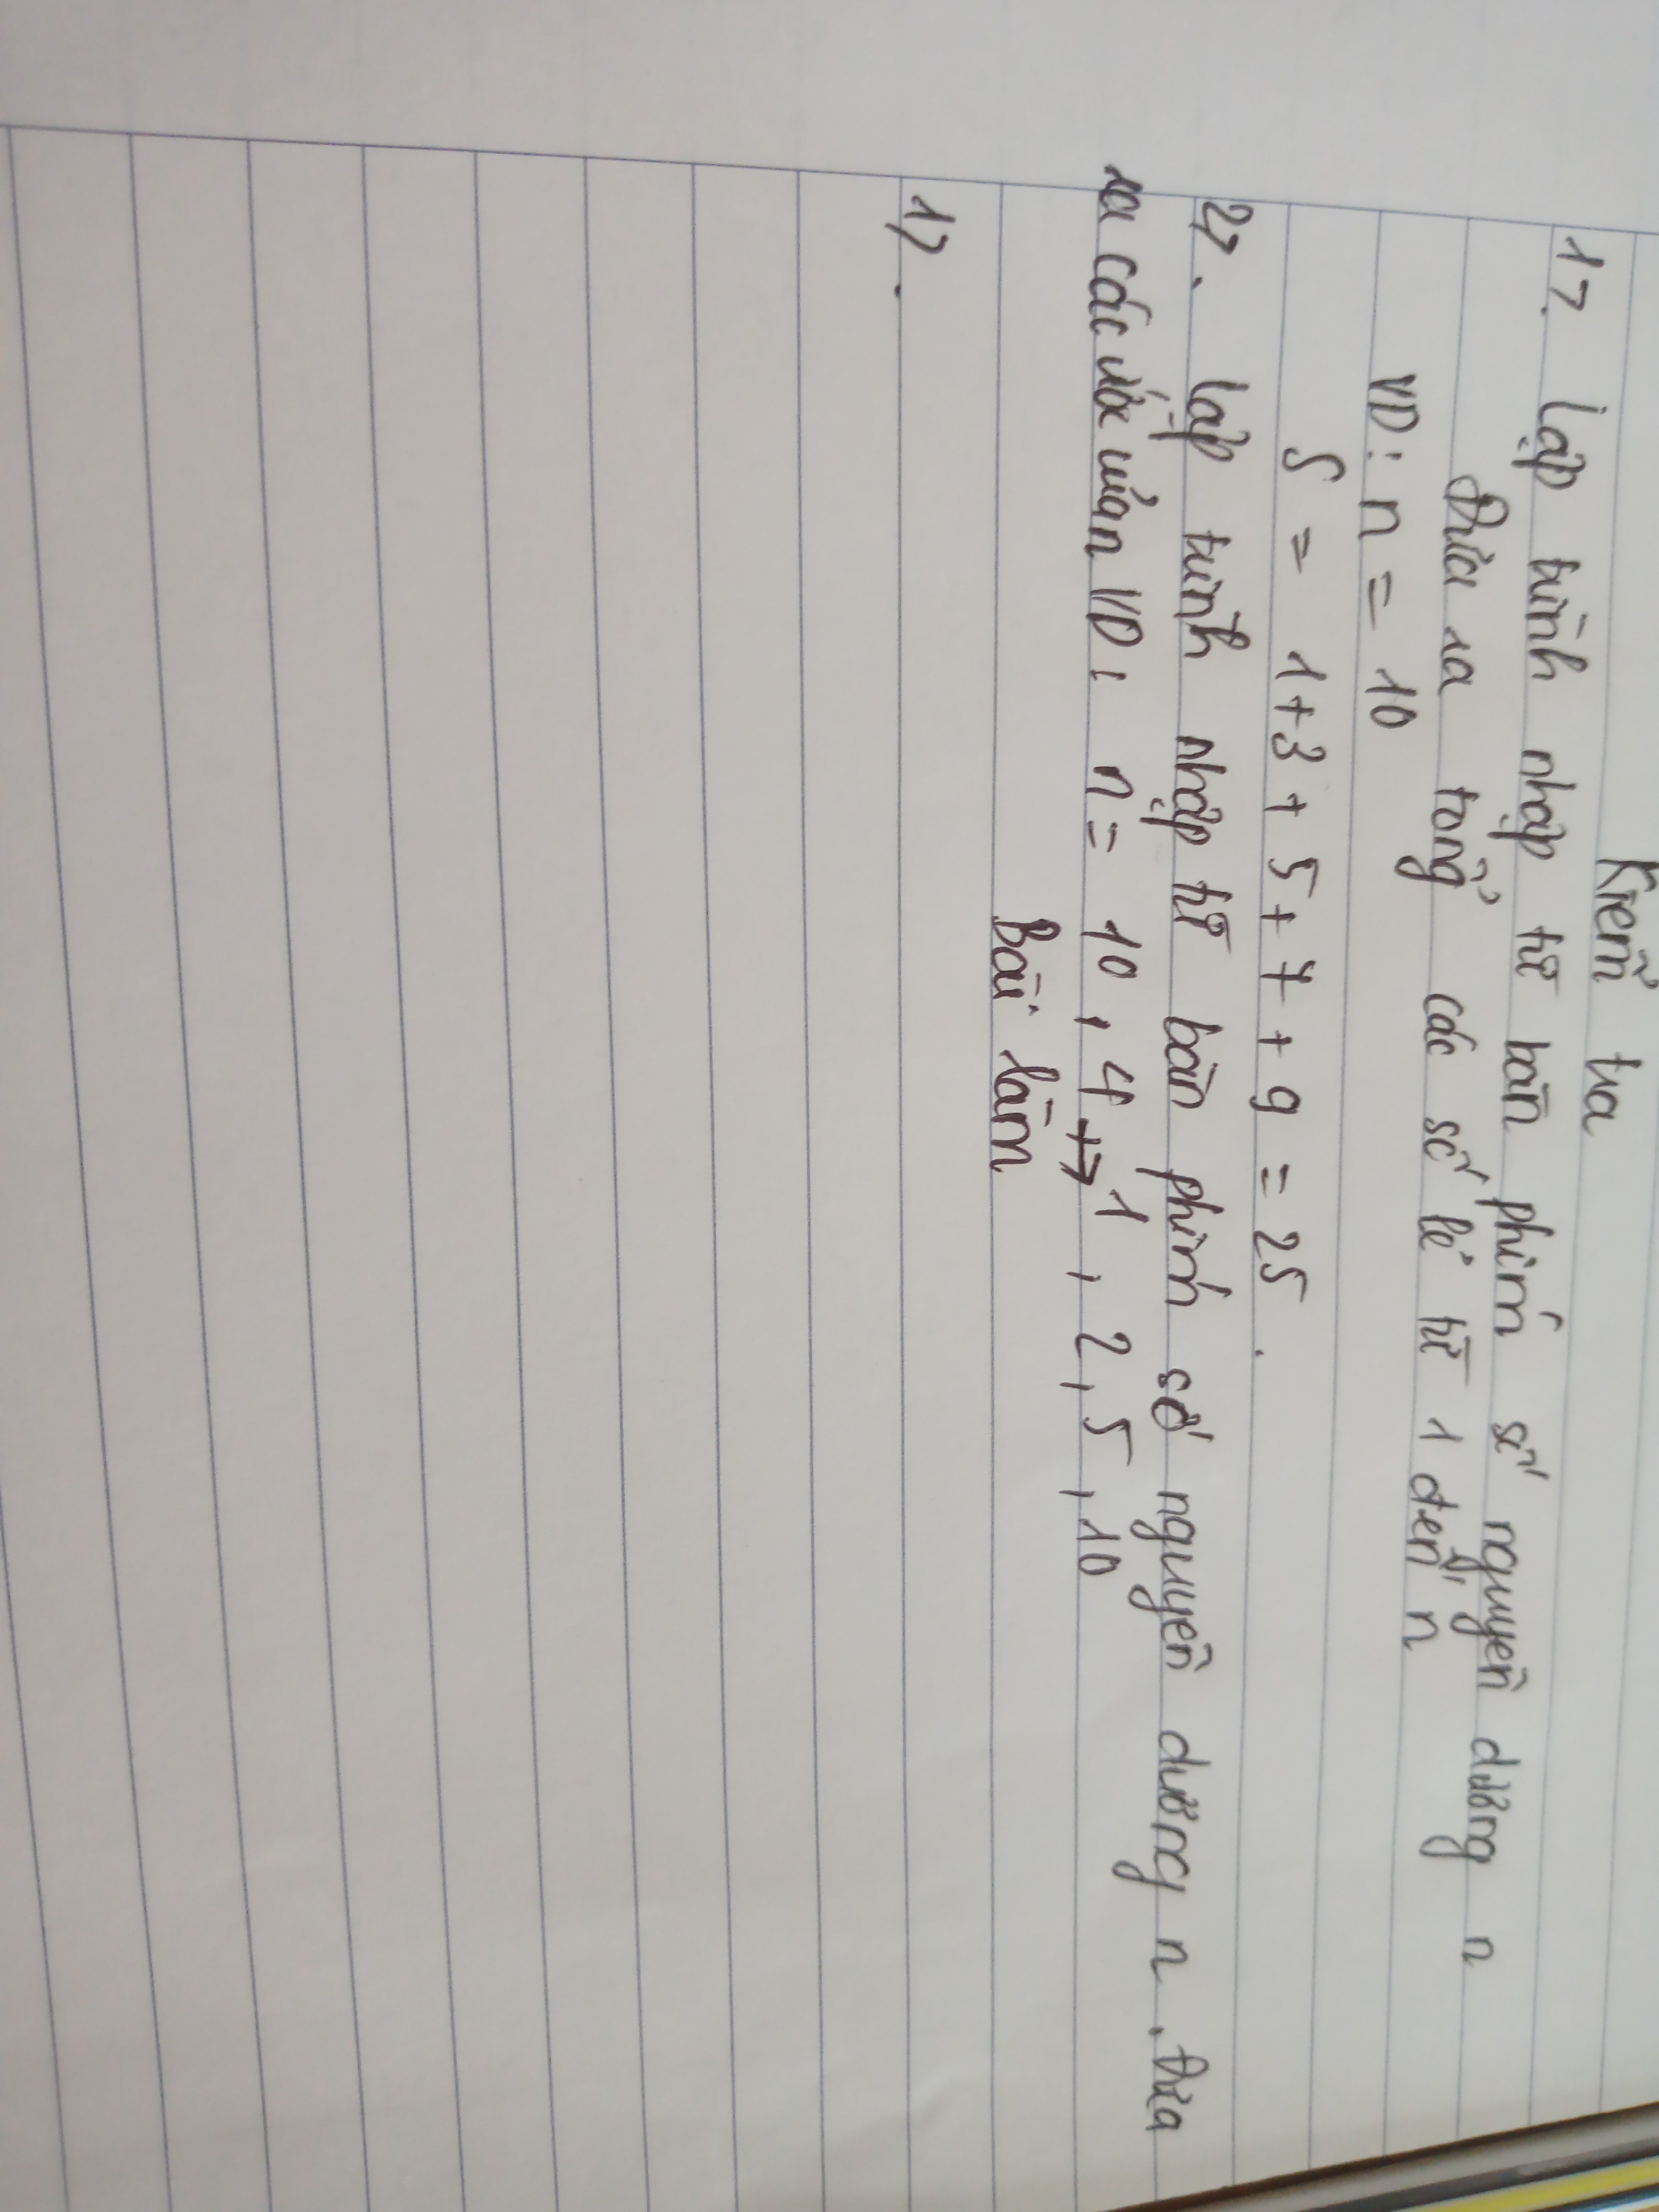 Kiểm tra
1>. Lập trình nhập từ bàn phím số nguyên dương n
Đưa ra tổng các số lẻ từ 1 đến n
VD: n = 10
S = 1+3+5+7+9 = 25.
2>. Lập trình nhập từ bàn phím số nguyên dương n. Đưa
ra các ước của n VD: n = 10, Ư → 1, 2, 5, 10
Bài làm
1>.